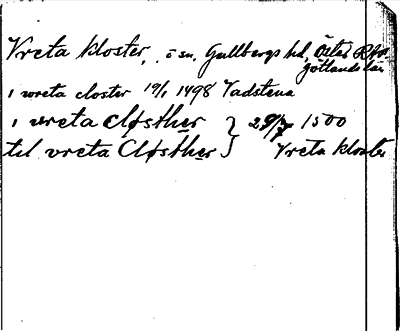 Vreta kloster, ö sn. Gullbergs hd, Öster
götlands län
i wreta closter 19/1 1498 Vadstena
i vreta cløsther } 29/7 1500
til vreta Cløsther } Vreta kloster